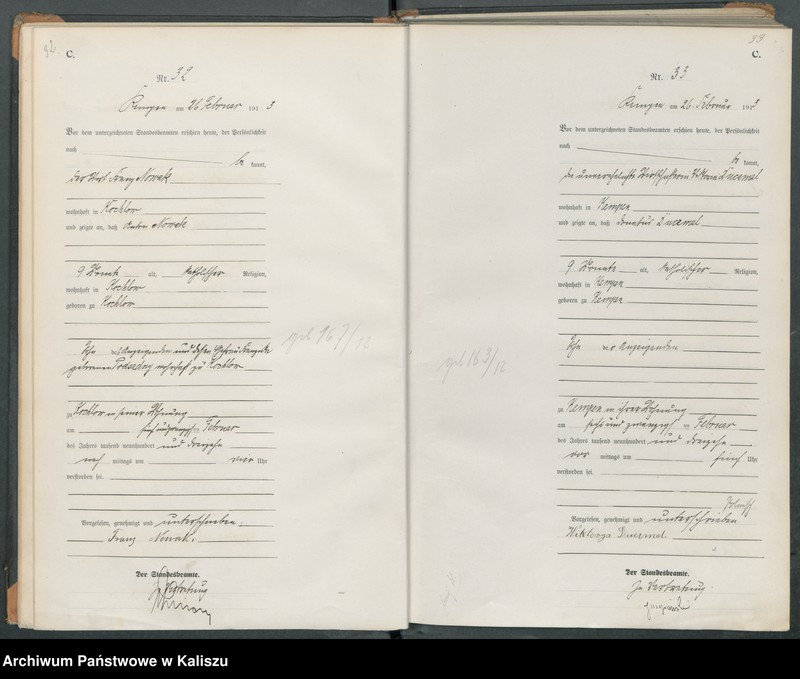 32
C.
Nr. 32
Kempen am 26. Februar 1913
Vor dem unterzeichneten Standesbeamten erschien heute, der Persönlichkeit
nach
be kannt,
der Wirt Franz Nowak
wohnhaft in Kochlow
und zeigte an, daß Anton Nowak
9 Monate alt, katholischer Religion,
wohnhaft in Kochlow
geboren zu Kochlow
Sohn des Anzeigenden und dessen Ehefrau
geborenen wohnhaft zu Kochlow
geb 16 7/12
zu Kochlow in seiner Wohnung
am fünfundzwanzigsten Februar
des Jahres tausend neunhundert und dreizehn
nach mittags um vier Uhr
verstorben sei.
Vorgelesen, genehmigt und unterschrieben.
Franz Nowak.
Der Standesbeamte.
In Vertretung
33
C.
Nr. 33
Kempen am 26. Februar 1913
Vor dem unterzeichneten Standesbeamten erschien heute, der Persönlichkeit
nach
be kannt,
die unverehelichte
wohnhaft in Kempen
und zeigte an, daß
9 Monate alt, katholischer Religion,
wohnhaft in Kempen
geboren zu Kempen
Sohn der Anzeigenden
geb 16 3/12
zu Kempen in ihrer Wohnung
am sechsundzwanzigsten Februar
des Jahres tausend neunhundert und dreizehn
vor mittags um fünf Uhr
verstorben sei.
polnisch
Vorgelesen, genehmigt und unterschrieben
Wiktorya
Der Standesbeamte.
In Vertretung
Archiwum Państwowe w Kaliszu